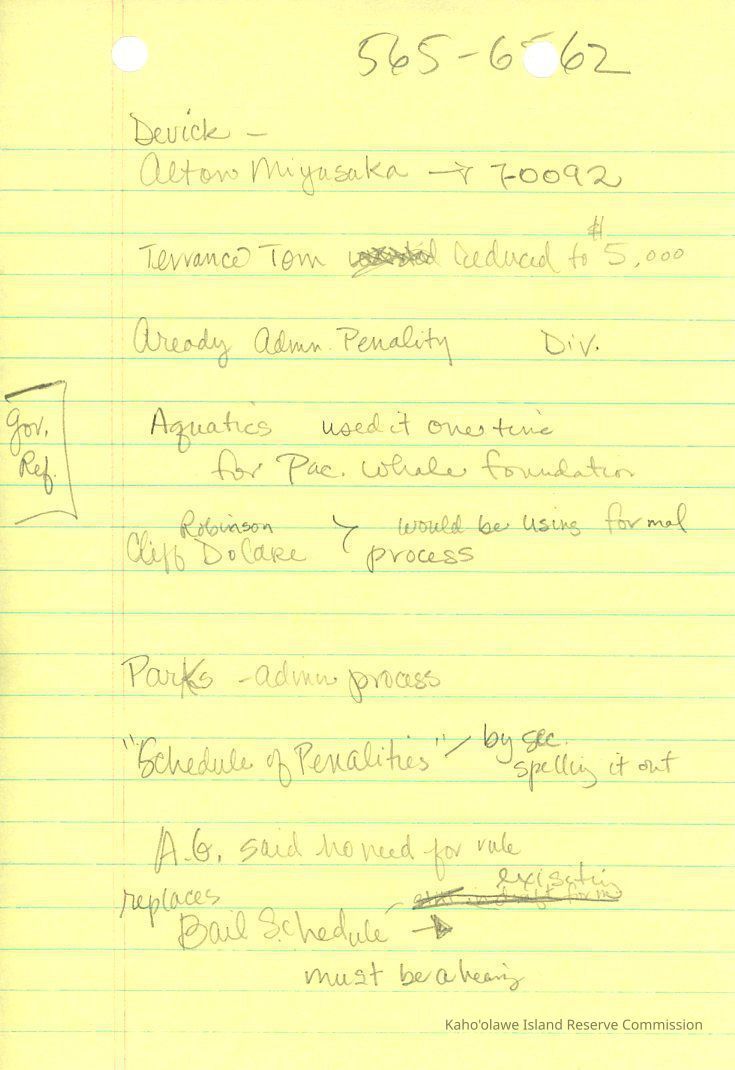 565-6562
Devick -
Alton Miyasaka → 7-0092
Terrance Tom reduced to $5,000
Aready Admn. Penality Div.
Gov.
Ref.
Aquatics used it one time
for Pac. Whale foundation
Robinson would be using formal
Cliff process
Parks - admin process
"Schedule of Penalities" - by sec.
spelling it out
A.G. said no need for rule
existin
replaces still in draft form
Bail Schedule →
must be a hearing
Kaho'olawe Island Reserve Commission